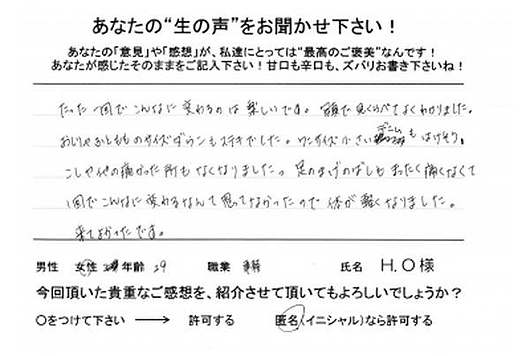 あなたの“生の声”をお聞かせ下さい！
あなたの「意見」や「感想」が、私達にとっては“最高のご褒美”なんです！
あなたが感じたそのままをご記入下さい！甘口も辛口も、ズバリお書き下さいね！
たった一回でこんなに変わるのは楽しいです。 見くらべてよくわかりました。
おしりやおしものサイズダウンもステキでした。ワンサイズ小さいデニムもはけそう。
こしや の痛かった所もなくなりました。足のまげのばしもまったく痛くなくて
1回でこんなに変わるなんて思ってなかったので体が軽くなりました。
来てよかったです。
男性 女性 年齢 29 職業 氏名 H.O様
今回頂いた貴重なご感想を、紹介させて頂いてもよろしいでしょうか？
○をつけて下さい → 許可する 匿名(イニシャル)なら許可する